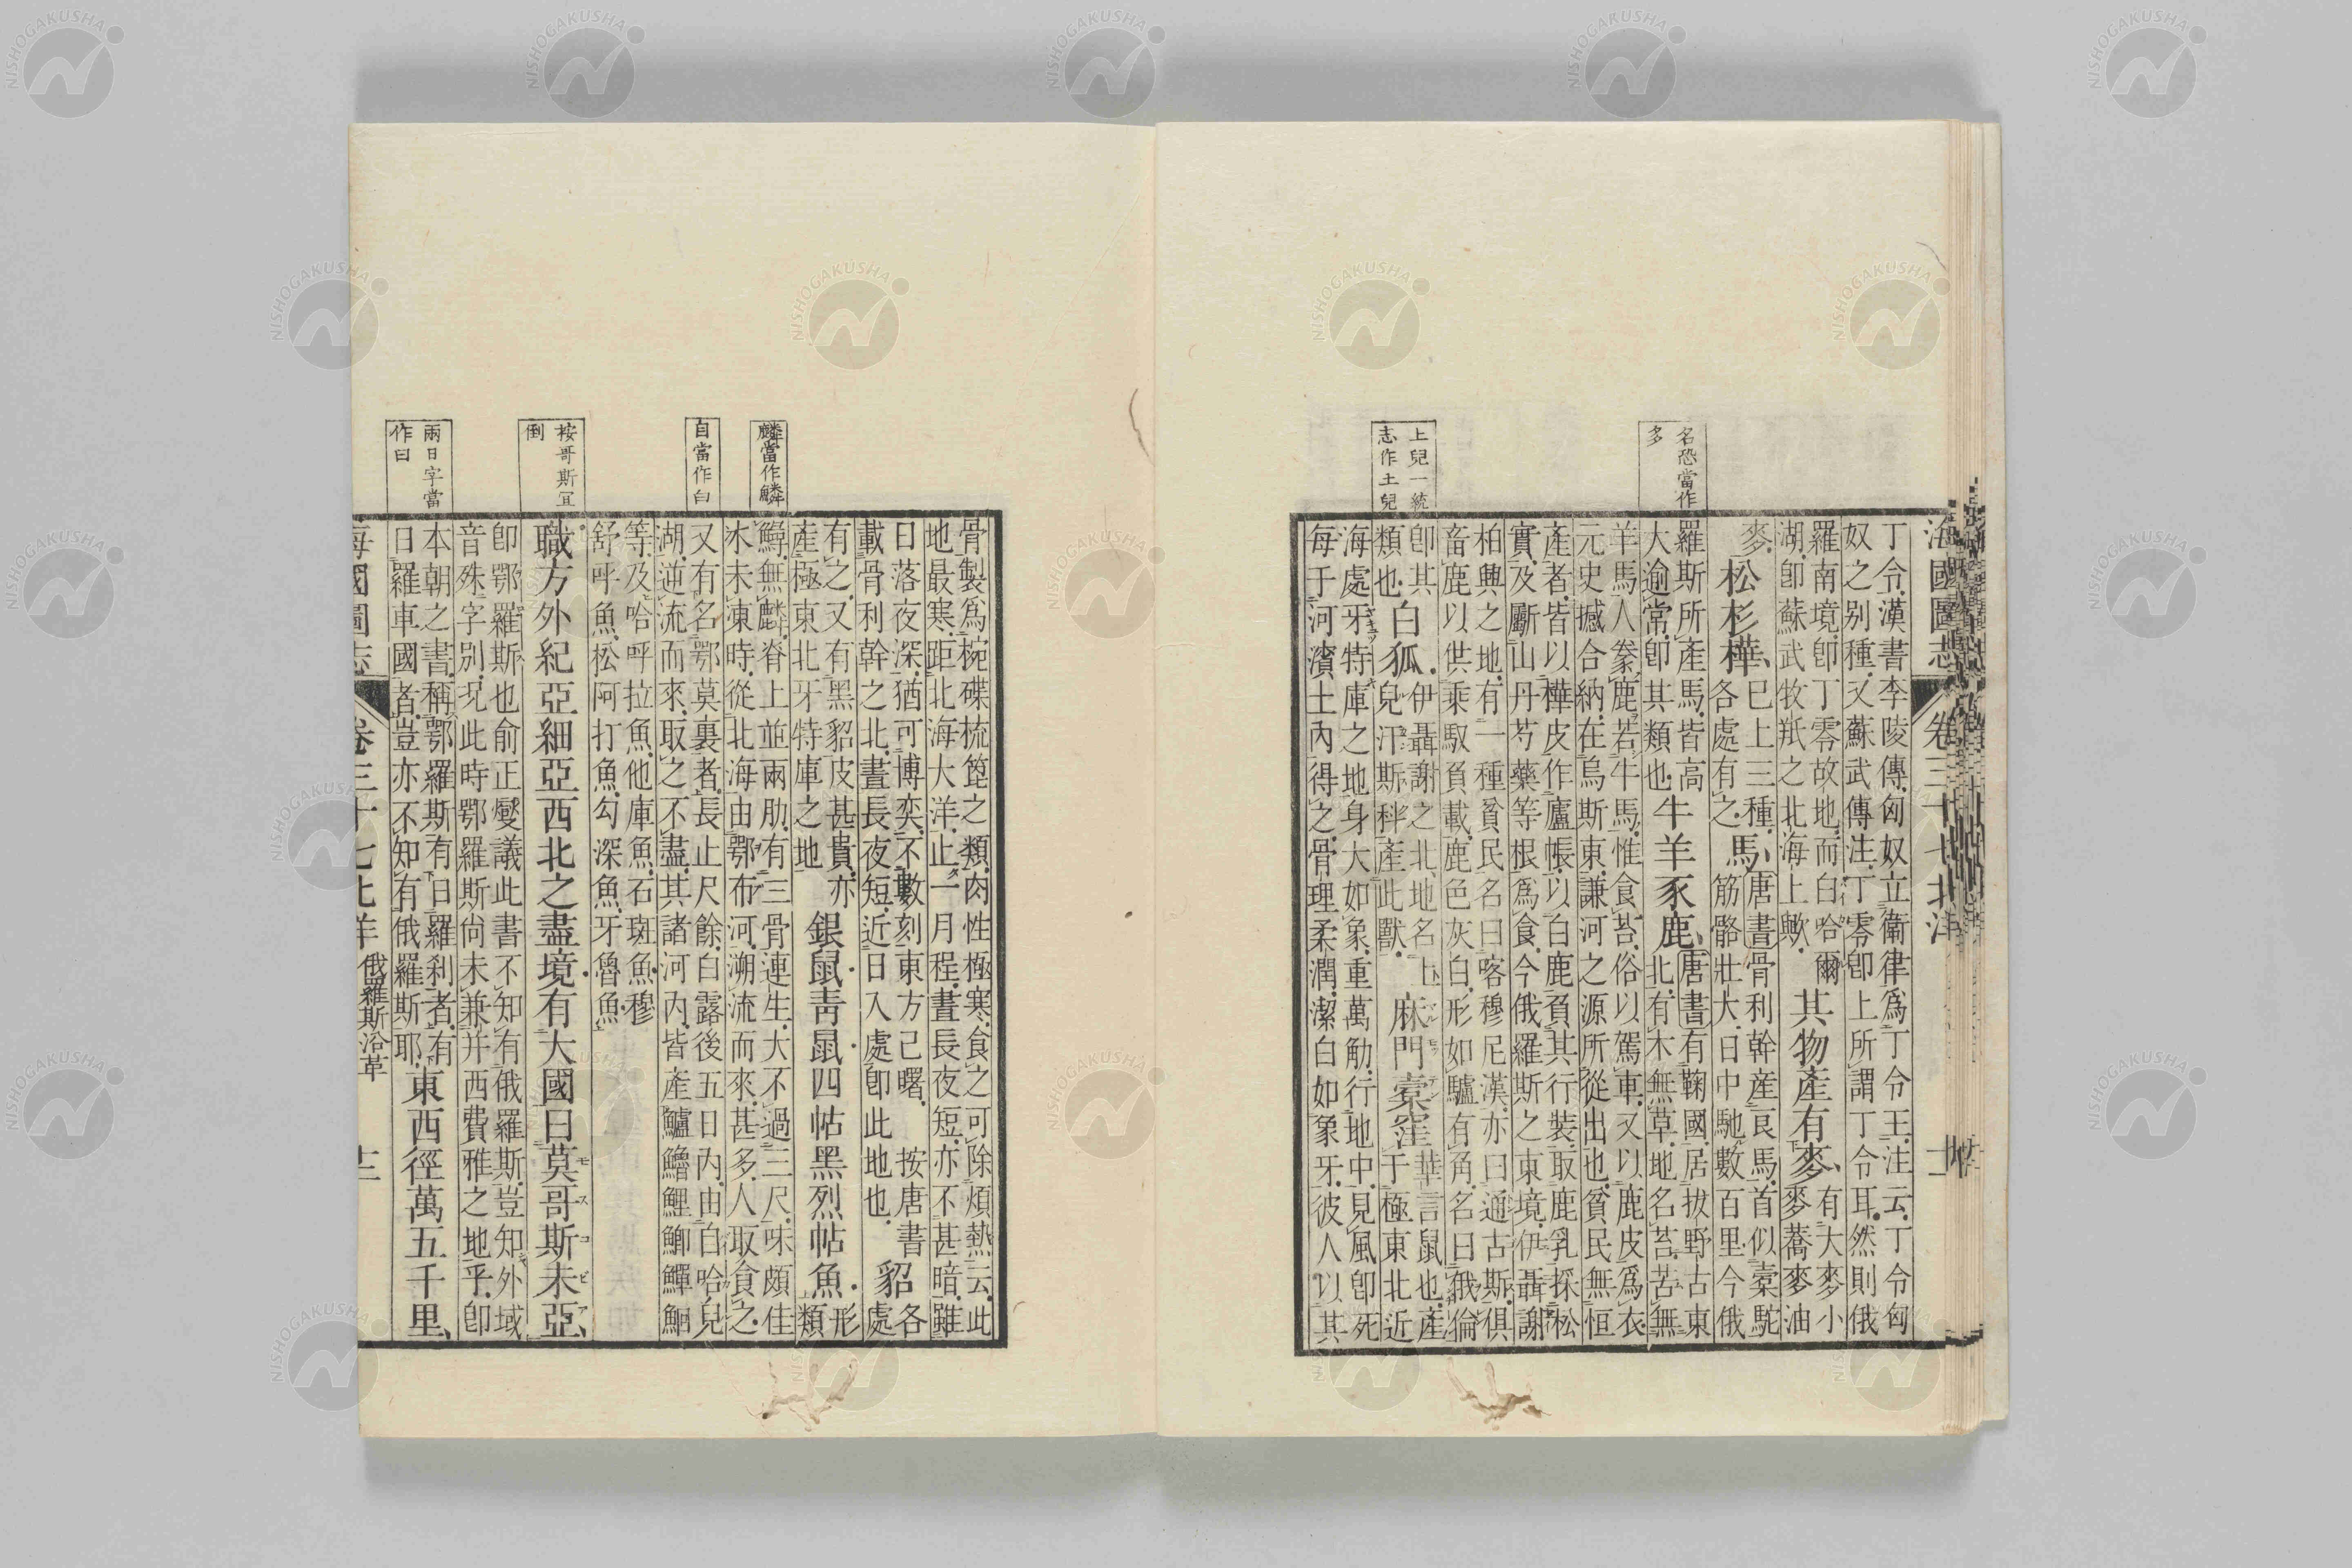 海國圖志 卷三十七 北洋
丁令漢書李陵傳匈奴立衛律爲丁令王注云丁令匈
奴之别種又蘇武傳注丁零卽上所謂丁令耳然則俄
羅南境卽丁零故地而白哈爾
湖卽蘇武牧羝之北海上歟
其物產有麥
有大麥小
麥蕎麥油
麥
松杉樺
巳上三種
各處有之
馬
唐書骨利幹產良馬首似橐駝
筋骼壯大日中馳數百里今俄
羅斯所產馬皆高
大逾常卽其類也
牛羊豕鹿
唐書有鞠國居拔野古東
北有木無草地名苔苦無
羊馬人豢鹿若牛馬惟食苔俗以駕車又以鹿皮爲衣
元史撼合納在烏斯東謙河之源所從出也貧民無恒
產者皆以樺皮作廬帳以白鹿負其行裝取鹿乳採松
實及劚山丹芍藥等根爲食今俄羅斯之東境伊聶謝
柏興之地有一種貧民名曰喀穆尼漢亦曰通古斯俱
畜鹿以供乘馭負載鹿色灰白形如驢有角名曰俄倫
卽其
類也
白狐
伊聶謝之北地名上
兒汗斯科產此獸
麻門橐窪
華言鼠也產
于極東北近
海處牙特庫之地身大如象重萬觔行地中見風卽死
每于河濱土內得之骨理柔潤潔白如象牙彼人以其
名恐當作
多
上兒一統
志作土兒
骨製爲椀碟梳箆之類肉性極寒食之可除煩熱云此
地最寒距北海大洋止一月程晝長夜短亦不甚暗雖
日落夜深猶可博奕不數刻東方已曙 按唐書
載骨利幹之北晝長夜短近日入處卽此地也
貂
各處
有之又有黑貂皮甚貴亦
產極東北牙特庫之地
銀鼠靑鼠四帖黑烈帖魚
形類
鱘無麟脊上並兩肋有三骨連生大不過三尺味頗佳
冰未凍時從北海由鄂布河溯流而來甚多人取食之
又有名鄂莫裏者長止尺餘白露後五日內由白哈兒
湖逆流而來取之不盡其諸河內皆產鱸鱠鯉鯽鱓鮰
等及哈呼拉魚他庫魚石斑魚穆
舒呼魚松阿打魚勾深魚牙魯魚
職方外紀亞細亞西北之盡境有大國曰莫哥斯未亞
モスコビア
卽鄂羅斯也俞正燮議此書不知有俄羅斯豈知外域
音殊字別況此時鄂羅斯尙未兼并西費雅之地乎卽
本朝之書稱鄂羅斯有日羅刹者有
日羅車國者豈亦不知有俄羅斯耶
東西徑萬五千里
麟當作鱗
自當作白
桉哥斯冝
倒
兩日字當
作曰
海國圖志 卷三十七 北洋 俄羅斯沿革 十二